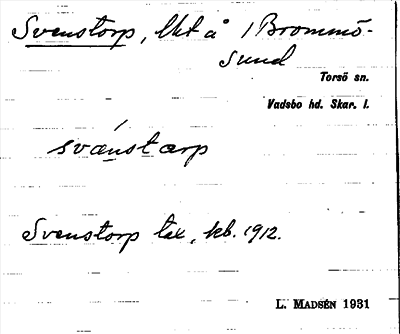 Svenstorp, lht å 1 Brommö-
sund
Torsö sn.
Vadsbo hd. Skar. l.
svǽnstarp
Svenstorp tax, kb. 1912.
L. MADSÉN 1931